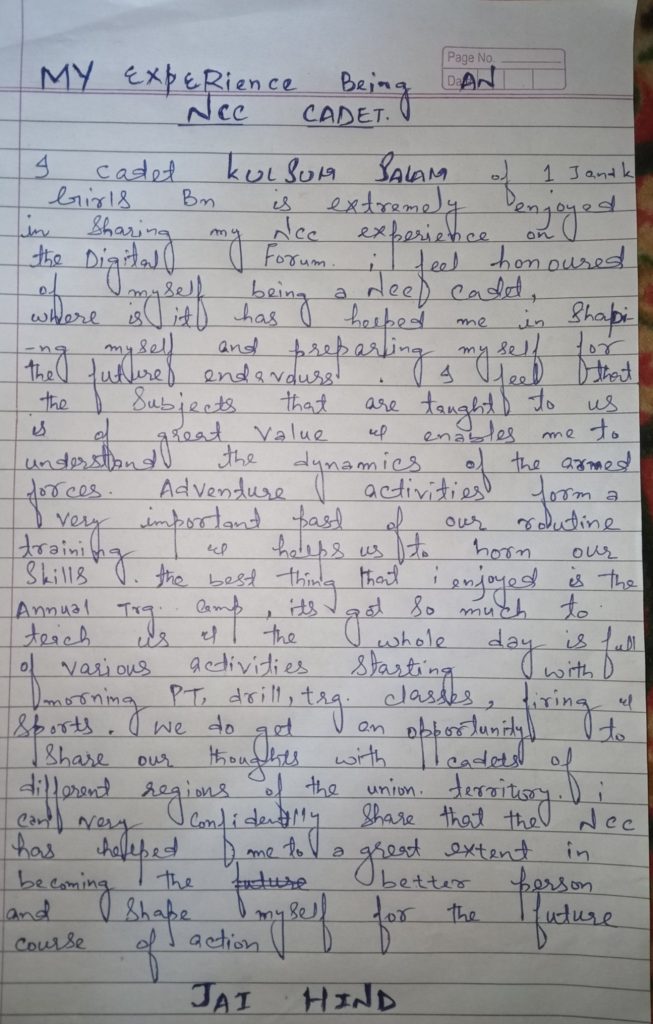 Page No.
MY Experience Being AN
NCC CADET.
I cadet KULSUM SALAM of 1 J and k
Girls Bn is extremely enjoyed
in sharing my Ncc experience on
the Digital Forum. i feel honoured
of myself being a Ncc cadet,
where is it has helped me in Shapi
-ng myself and preparing myself for
the future endavours. I feel that
the Subjects that are taught to us
is of great value & enables me to
understand the dynamics of the armed
forces. Adventure activities form a
very important past of our routine
training & helps us to horn our
Skills. the best thing that i enjoyed is the
Annual Trg. Camp, its got so much to
teach us & the whole day is full
of various activities Starting with
morning PT, drill, trg. classes, firing &
Sports. We do get an opportunity to
Share our thoughts with cadets of
different regions of the union. territory. i
can very Confidently Share that the Ncc
has helped me to a great extent in
becoming the better person
and Shape myself for the future
course of action
JAI HIND